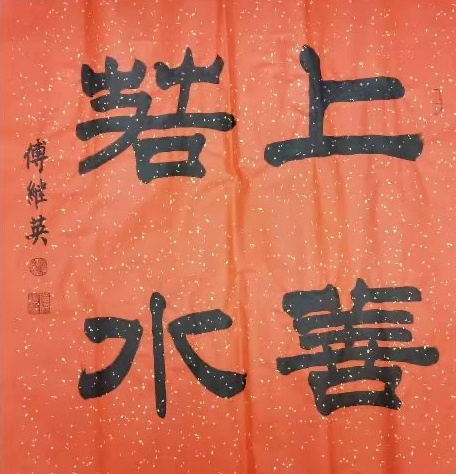 上善
若水
傅继英